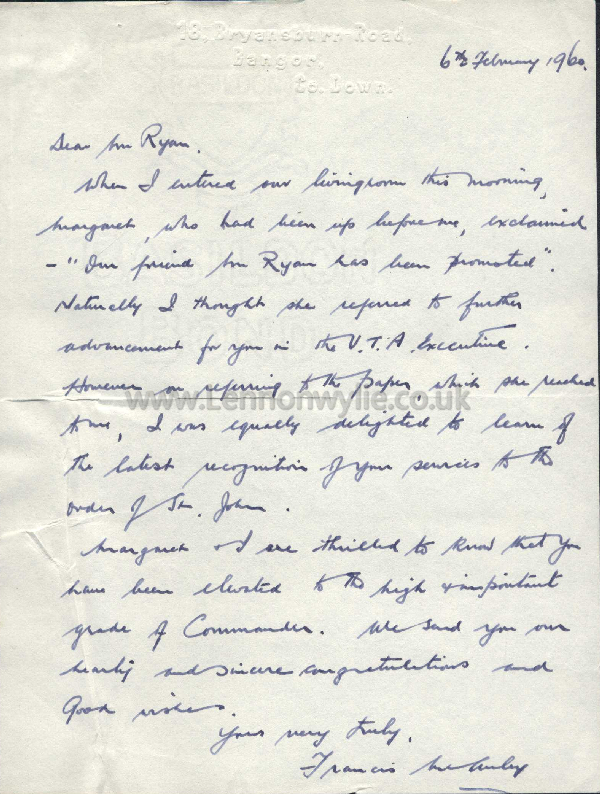 18, Bryansburn Road,
Bangor,
Co. Down.
6th February 1960.
Dear Mr Ryan.
When I entered our livingroom this morning,
Margaret, who had been up before me, exclaimed
- "Our friend Mr Ryan has been promoted".
Naturally I thought she referred to further
advancement for you in the U.T.A. Executive.
However on referring to the paper, which she reached
to me, I was equally delighted to learn of
the latest recognition of your services to the
order of St. John.
Margaret & I are thrilled to know that you
have been elevated to the high & important
grade of Commander. We send you our
hearty and sincere congratulations and
Good wishes.
Yours very truly,
Francis
www.Lennonwylie.co.uk